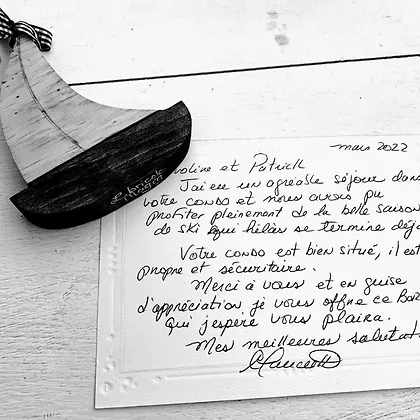 mars 2022
roline et Patrick
J'ai eu un agréable séjour dans
votre condo et nous avons pu
profiter pleinement de la belle saison
de ski qui hélas se termine déjà
Votre condo est bien situé, il est
propre et sécuritaire.
Merci à vous et en guise
d'appréciation je vous offre ce Ba
qui j'espère vous plaira.
Mes meilleures salutat